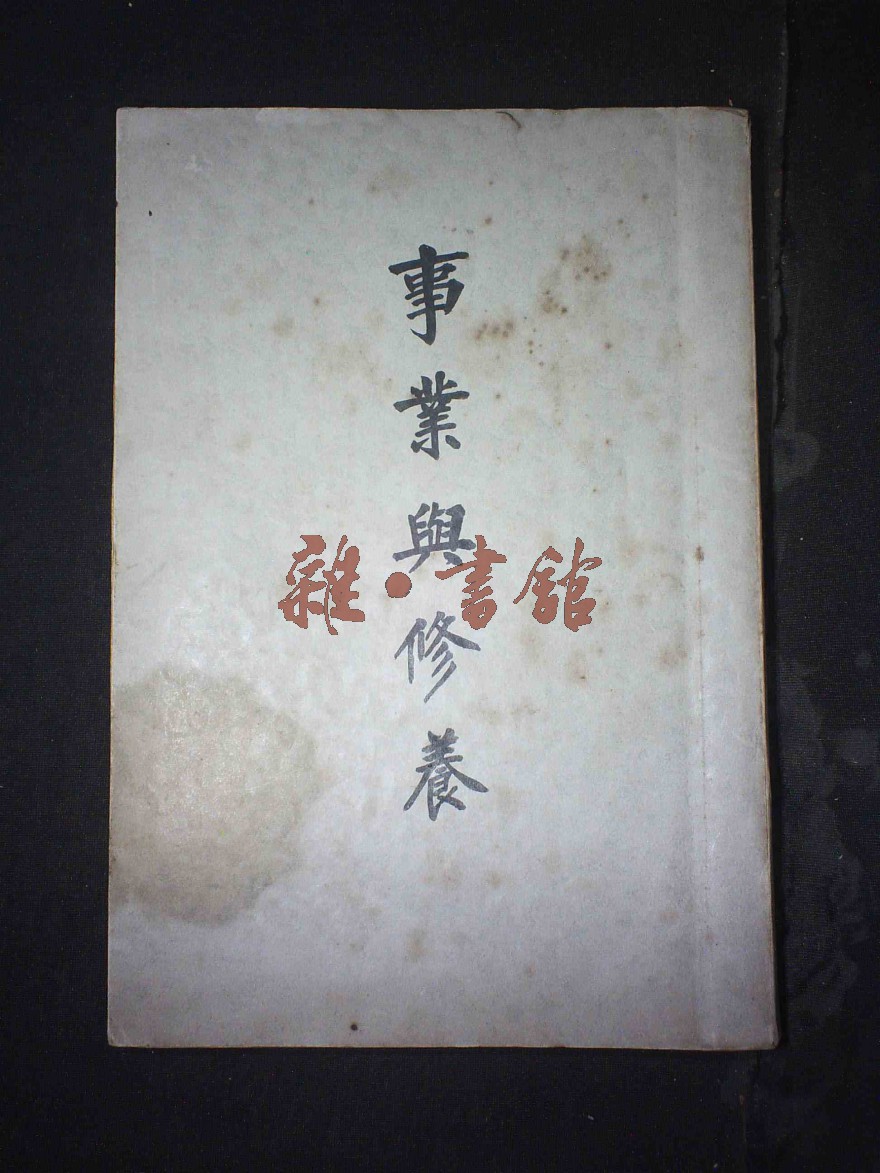 事業與修養
雜·書館